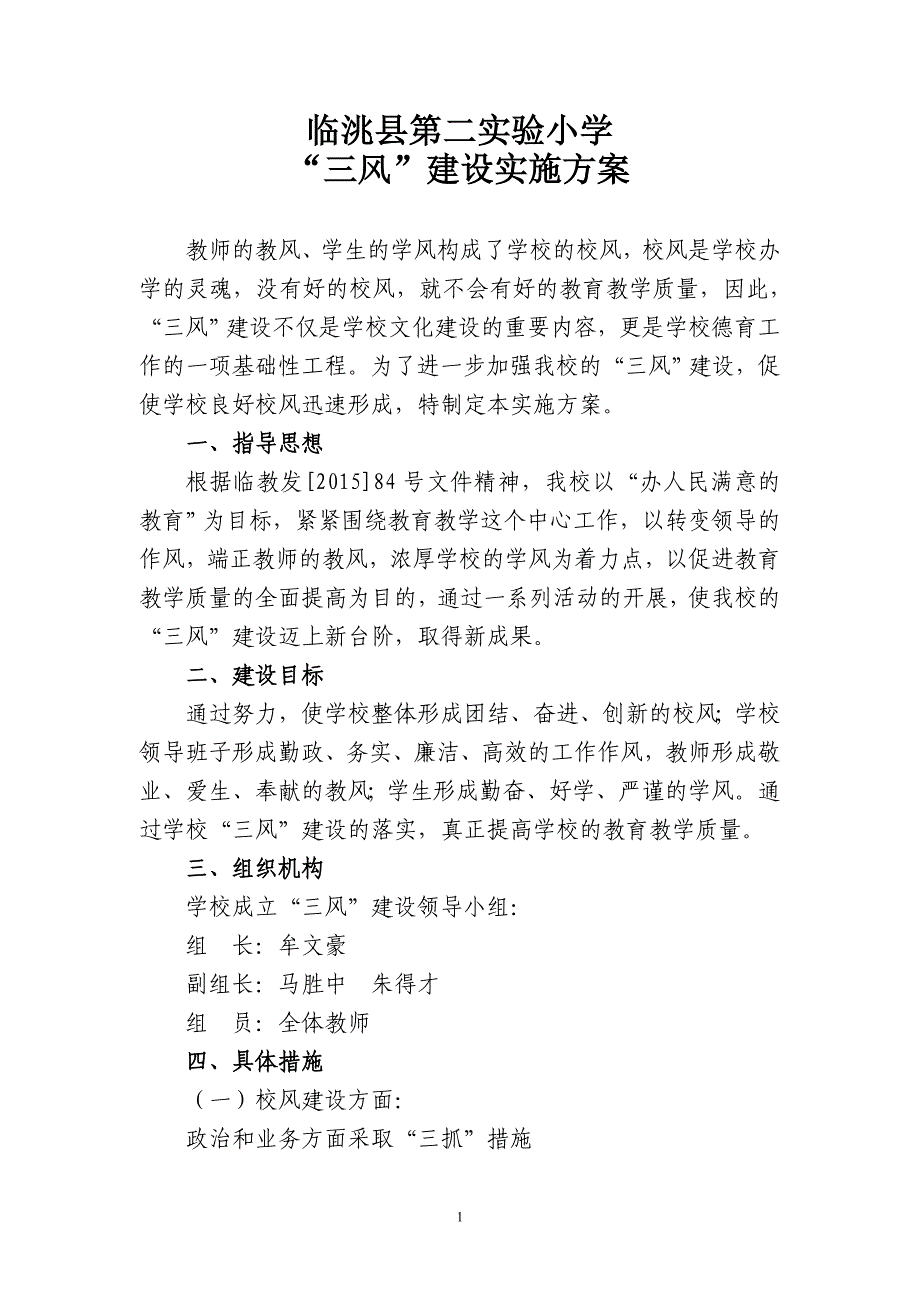 临洮县第二实验小学
“三风”建设实施方案
教师的教风、学生的学风构成了学校的校风，校风是学校办
学的灵魂，没有好的校风，就不会有好的教育教学质量，因此，
“三风”建设不仅是学校文化建设的重要内容，更是学校德育工
作的一项基础性工程。为了进一步加强我校的“三风”建设，促
使学校良好校风迅速形成，特制定本实施方案。
一、指导思想
根据临教发[2015]84 号文件精神，我校以“办人民满意的
教育”为目标，紧紧围绕教育教学这个中心工作，以转变领导的
作风，端正教师的教风，浓厚学校的学风为着力点，以促进教育
教学质量的全面提高为目的，通过一系列活动的开展，使我校的
“三风”建设迈上新台阶，取得新成果。
二、建设目标
通过努力，使学校整体形成团结、奋进、创新的校风；学校
领导班子形成勤政、务实、廉洁、高效的工作作风，教师形成敬
业、爱生、奉献的教风；学生形成勤奋、好学、严谨的学风。通
过学校“三风”建设的落实，真正提高学校的教育教学质量。
三、组织机构
学校成立“三风”建设领导小组：
组　长：牟文豪
副组长：马胜中　朱得才
组　员：全体教师
四、具体措施
（一）校风建设方面：
政治和业务方面采取“三抓”措施
1